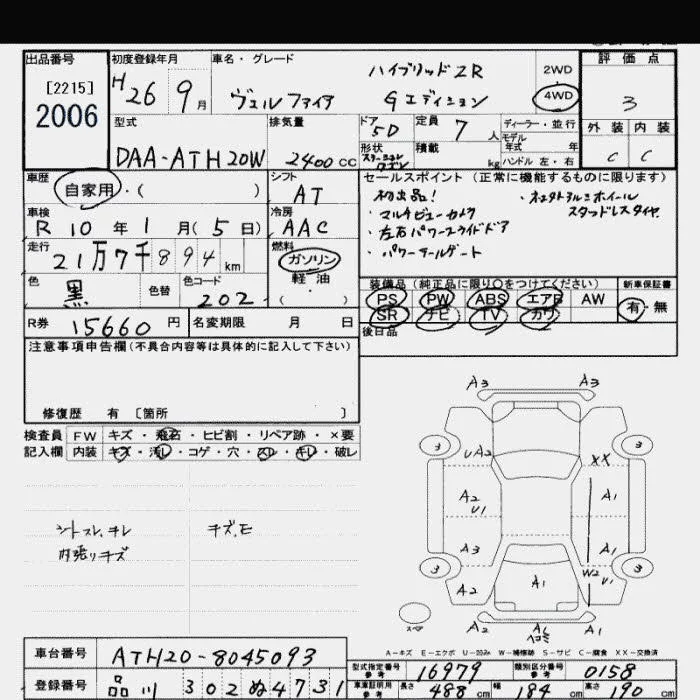 出品番号 初度登録年月 車名・グレード 評価点
[2215]
2006
H26 9月 ヴェルファイア ハイブリッドZR 2WD
Gエディション 4WD 3
型式 排気量 ドア 定員 ディーラー・並行 外装 内装
DAA-ATH20W 2400cc 5D 7人 モデル年式 年 C C
形状 積載 kg ハンドル 左・右
車歴 シフト セールスポイント (正常に機能するものに限ります)
自家用・( ) AT 初出品!
車検 冷房 ・マルチビューカメラ
R10年1月(5日) AAC ・左右パワースライドドア
走行 燃料 ・パワーテールゲート
21万7千894km ガソリン スタッドレスタイヤ
色 色替 色コード 軽油
黒 202 ( ・ )
装備品 (純正品に限り○をつけてください) 新車保証書
PS PW ABS エアB AW 有・無
SR ナビ TV カワ
R券 15660円 名変期限 月 日 後日品
注意事項申告欄(不具合内容等は具体的に記入して下さい)
修復歴 有 [箇所 ]
検査員 FW キズ・飛石・ヒビ割・リペア跡・×要
記入欄 内装 キズ・汚レ・コゲ・穴・スレ・キレ・破レ
シートスレ、キレ キズ、E
内張りキズ
A3 A3
3 3
UA2 XX
A2 U1 A1
A3 A1
3 W2 U1 3
A2 A1
スペア A2 AL ヘコミ A1
A-キズ E-エクボ U-凹み W-補修跡 S-サビ C-腐食 XX-交換済
車台番号 ATH20-8045093
型式指定番号 参考 16979 類別区分番号 参考 0158
登録番号 品川 302 ぬ 4731
車車証明用 参考 長さ 488cm 幅 184cm 高さ 190cm